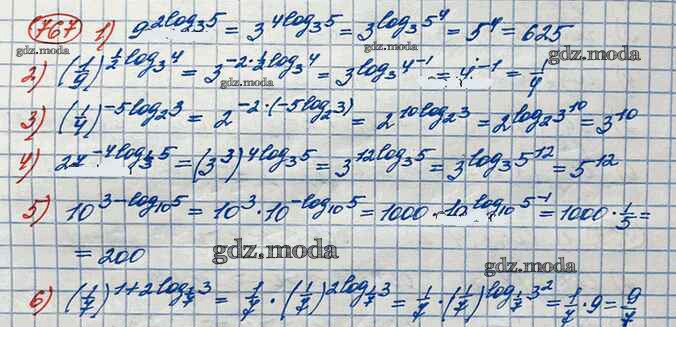 767 1) 9^{2log_3 5} = 3^{4log_3 5} = 3^{log_3 5^4} = 5^4 = 625
gdz.moda gdz.moda
2) (1/9)^{1/2 log_3 4} = 3^{-2·1/2 log_3 4} = 3^{log_3 4^{-1}} = 4^{-1} = 1/4
gdz.moda gdz.moda
3) (1/4)^{-5log_2 3} = 2^{-2·(-5log_2 3)} = 2^{10log_2 3} = 2^{log_2 3^{10}} = 3^{10}
gdz.moda
4) 27^{-4log_{1/3} 5} = (3^3)^{4log_3 5} = 3^{12log_3 5} = 3^{log_3 5^{12}} = 5^{12}
gdz.moda gdz.moda
5) 10^{3-log_{10} 5} = 10^3 · 10^{-log_{10} 5} = 1000 · 10^{log_{10} 5^{-1}} = 1000 · 1/5 =
= 200
gdz.moda gdz.moda
6) (1/7)^{1+2log_{1/7} 3} = 1/7 · (1/7)^{2log_{1/7} 3} = 1/7 · (1/7)^{log_{1/7} 3^2} = 1/7 · 9 = 9/7
gdz.moda gdz.moda